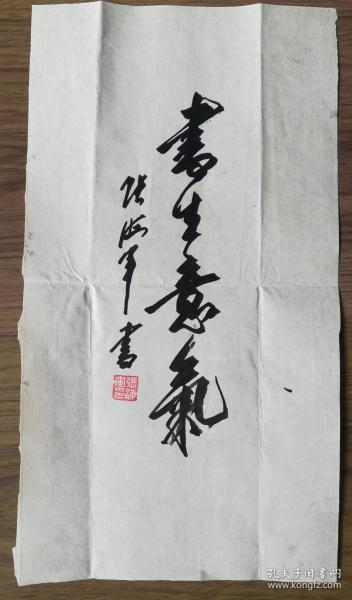 書生意氣
張海軍書
孔夫子旧书网
www.kongfz.com